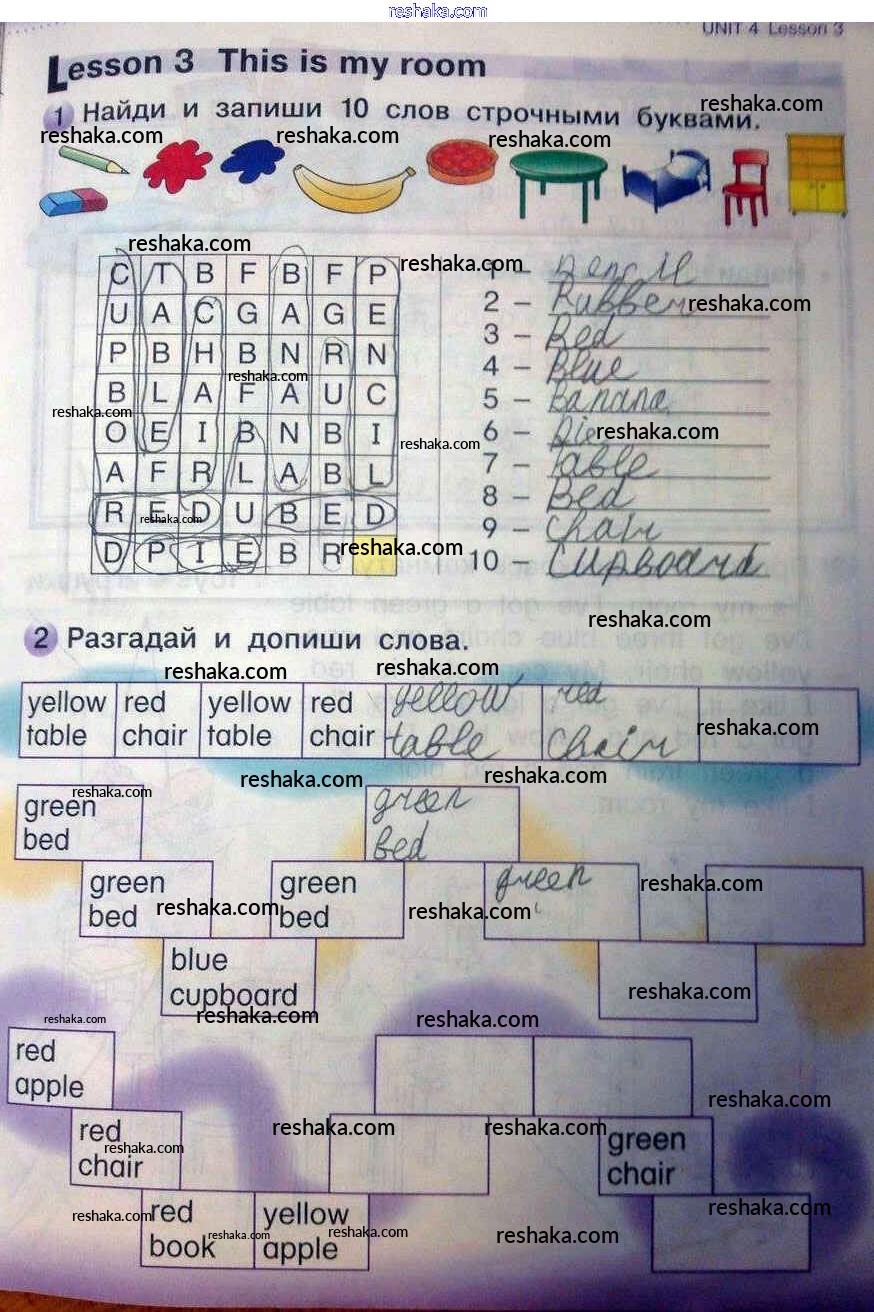 reshaka.com
UNIT 4 Lesson 3
Lesson 3 This is my room
1 Найди и запиши 10 слов строчными буквами.
reshaka.com
reshaka.com
reshaka.com
reshaka.com
reshaka.com
C T B F B F P
U A C G A G E
P B H B N R N
B L A F A U C
O E I B N B I
A F R L A B L
R E D U B E D
D P I E B R
reshaka.com
reshaka.com
reshaka.com
reshaka.com
reshaka.com
1 – Pencil
2 – Rubber
reshaka.com
3 – Red
4 – Blue
5 – Banana
6 – Pie
reshaka.com
7 – Table
8 – Bed
9 – Chair
10 – Cupboard
reshaka.com
reshaka.com
2 Разгадай и допиши слова.
reshaka.com
reshaka.com
yellow table
red chair
yellow table
red chair
yellow table
red chair
reshaka.com
reshaka.com
reshaka.com
green bed
reshaka.com
green bed
green bed
reshaka.com
green bed
reshaka.com
green
reshaka.com
blue cupboard
reshaka.com
reshaka.com
reshaka.com
reshaka.com
red apple
reshaka.com
red chair
reshaka.com
reshaka.com
reshaka.com
green chair
red book
reshaka.com
reshaka.com
yellow apple
reshaka.com
reshaka.com
reshaka.com